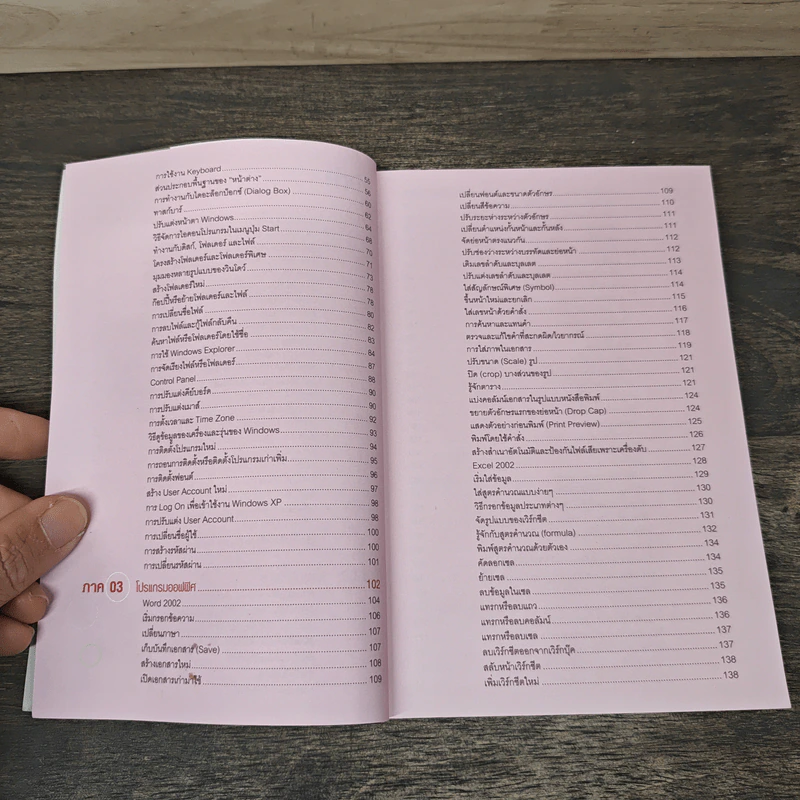 การใช้งาน Keyboard
ส่วนประกอบพื้นฐานของ "หน้าต่าง" 55
การทำงานกับไดอะล็อกบ๊อกซ์ (Dialog Box) 56
ทาสก์บาร์ 60
ปรับแต่งหน้าตา Windows 62
วิธีจัดการไอคอนโปรแกรมในเมนูปุ่ม Start 64
ทำงานกับดิสก์, โฟลเดอร์ และไฟล์ 68
โครงสร้างโฟลเดอร์และโฟลเดอร์พิเศษ 70
มุมมองหลายรูปแบบของวินโดว์ 71
สร้างโฟลเดอร์ใหม่ 73
ก๊อปปี้หรือย้ายโฟลเดอร์และไฟล์ 78
การเปลี่ยนชื่อไฟล์ 78
การลบไฟล์และกู้ไฟล์กลับคืน 80
ค้นหาไฟล์หรือโฟลเดอร์โดยใช้ชื่อ 82
การใช้ Windows Explorer 83
การจัดเรียงไฟล์หรือโฟลเดอร์ 84
Control Panel 87
การปรับแต่งคีย์บอร์ด 88
การปรับแต่งเมาส์ 90
การตั้งเวลาและ Time Zone 90
วิธีดูข้อมูลของเครื่องและรุ่นของ Windows 92
การติดตั้งโปรแกรมใหม่ 93
การถอนการติดตั้งหรือติดตั้งโปรแกรมเก่าเพิ่ม 94
การติดตั้งฟอนต์ 95
สร้าง User Account ใหม่ 96
การ Log On เพื่อเข้าใช้งาน Windows XP 97
การปรับแต่ง User Account 98
การเปลี่ยนชื่อผู้ใช้ 98
การสร้างรหัสผ่าน 100
การเปลี่ยนรหัสผ่าน 100
101
ภาค 03 โปรแกรมออฟฟิศ 102
Word 2002 104
เริ่มกรอกข้อความ 106
เปลี่ยนภาษา 107
เก็บบันทึกเอกสาร (Save) 107
สร้างเอกสารใหม่ 108
เปิดเอกสารเก่ามาใช้ 109
เปลี่ยนฟอนต์และขนาดตัวอักษร 109
เปลี่ยนสีข้อความ 110
ปรับระยะห่างระหว่างตัวอักษร 111
เปลี่ยนตำแหน่งกั้นหน้าและกั้นหลัง 111
จัดย่อหน้าตรงแนวกัน 112
ปรับช่องว่างระหว่างบรรทัดและย่อหน้า 112
เติมเลขลำดับและบุลเลต 113
ปรับแต่งเลขลำดับและบุลเลต 114
ใส่สัญลักษณ์พิเศษ (Symbol) 114
ขึ้นหน้าใหม่และยกเลิก 115
ใส่เลขหน้าด้วยคำสั่ง 116
การค้นหาและแทนคำ 117
ตรวจและแก้ไขคำที่สะกดผิด/ไวยากรณ์ 118
การใส่ภาพในเอกสาร 119
ปรับขนาด (Scale) รูป 121
ปิด (crop) บางส่วนของรูป 121
รู้จักตาราง 121
แบ่งคอลัมน์เอกสารในรูปแบบหนังสือพิมพ์ 124
ขยายตัวอักษรแรกของย่อหน้า (Drop Cap) 124
แสดงตัวอย่างก่อนพิมพ์ (Print Preview) 125
พิมพ์โดยใช้คำสั่ง 126
สร้างสำเนาอัตโนมัติและป้องกันไฟล์เสียเพราะเครื่องดับ 127
Excel 2002 128
เริ่มใส่ข้อมูล 129
ใส่สูตรคำนวณแบบง่ายๆ 130
วิธีกรอกข้อมูลประเภทต่างๆ 130
จัดรูปแบบของเวิร์กชีต 131
รู้จักกับสูตรคำนวณ (formula) 132
พิมพ์สูตรคำนวณด้วยตัวเอง 134
คัดลอกเซล 134
ย้ายเซล 135
ลบข้อมูลในเซล 135
แทรกหรือลบแถว 136
แทรกหรือลบคอลัมน์ 136
แทรกหรือลบเซล 137
ลบเวิร์กชีตออกจากเวิร์กบุ๊ค 137
สลับหน้าเวิร์กชีต 138
เพิ่มเวิร์กชีตใหม่ 138